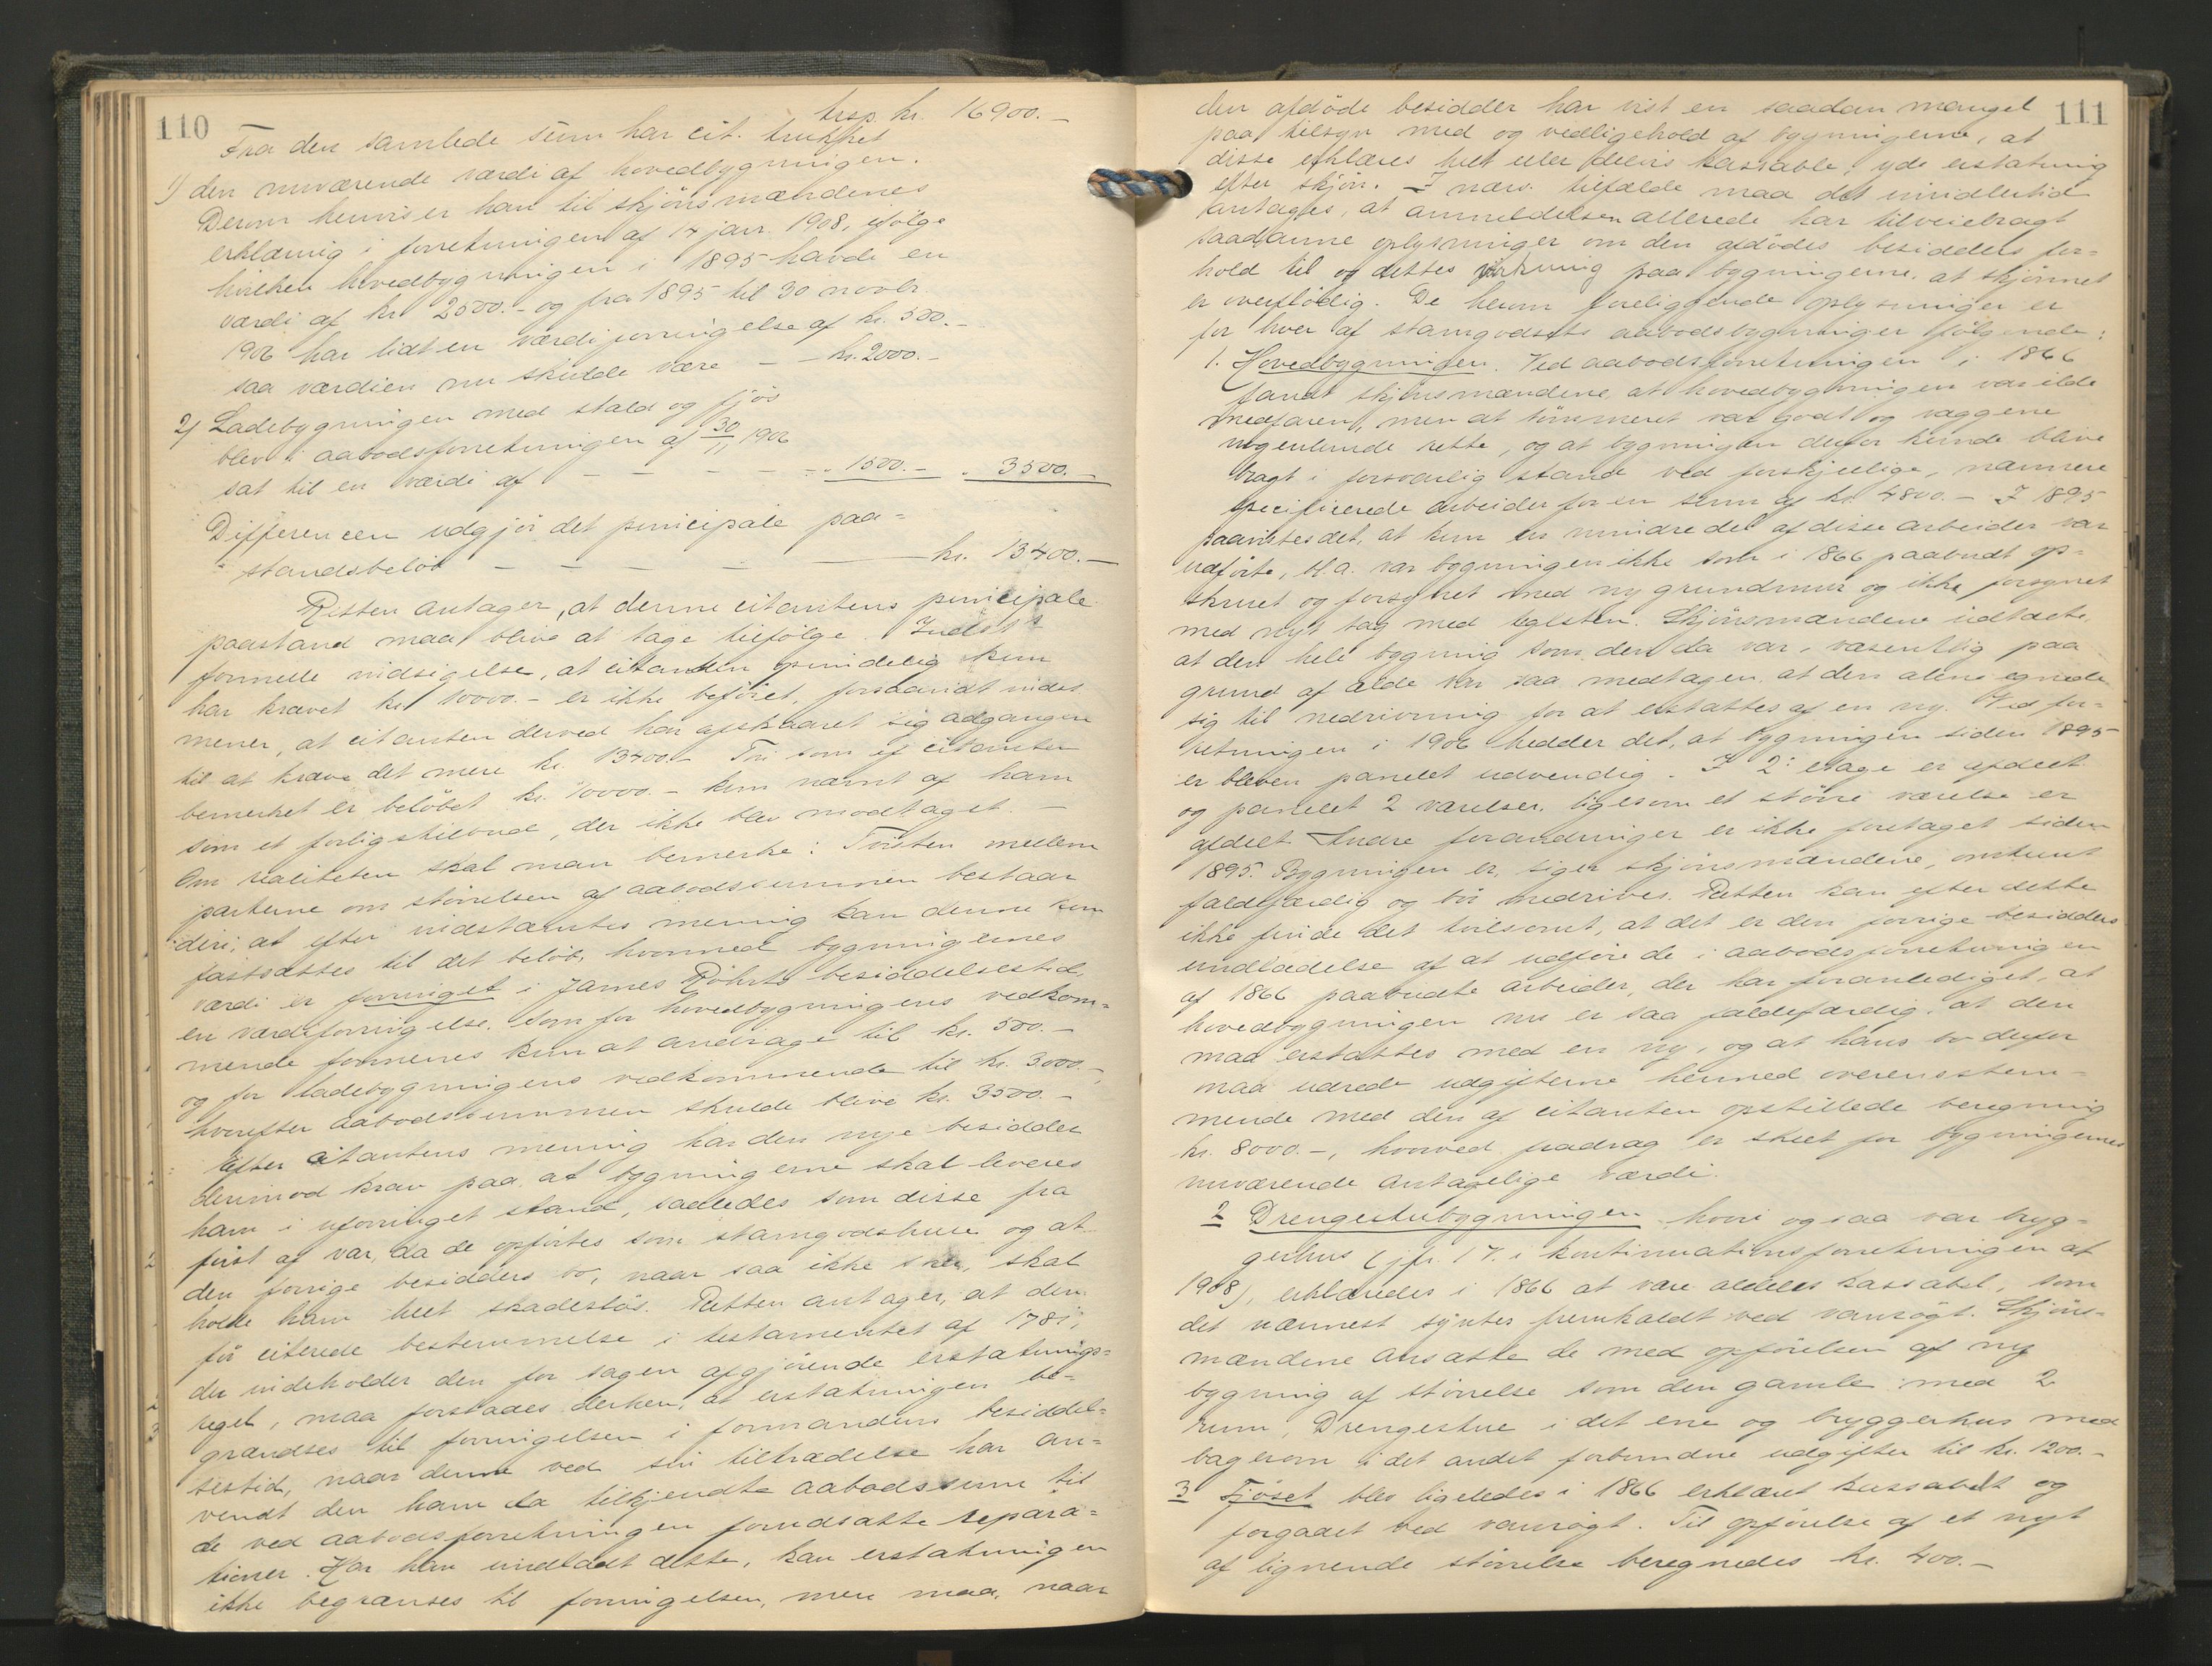 110
trsp. kr. 16900.-
Fra den samlede sum har cit. trukket
1) den nuværende værdi af hovedbygningen.
Derom henviser han til skjönsmændenes
erklæring i forretningen af 14 jan. 1908, ifölge
hvilken hovedbygningen i 1895 havde en
værdi af kr. 2500.- og fra 1895 til 30 novbr.
1906 har lidt en værdiforringelse af kr. 500.-
saa værdien nu skulde være - - kr. 2000.-
2) Ladebygningen med stald og fjös
blev i aabodsforretningen af 30/11 1906
sat til en værdi af - - - - - - 1500.- . 3500.-
Differencen udgjör det principale paa-
standsbelöb - - - - - kr. 13400.-
Retten antager, at denne citantens principale
paastand maa blive at tage tilfölge. Indst.s
formelle indsigelse, at citanten oprindelig kun
har krævet kr. 10000.- er ikke beföiet, forsaavidt indst.
mener, at citanten derved har afskaaret sig adgangen
til at kræve det mere kr. 13400.- Thi som af citanten
bemerket er belöbet kr. 10000.- kun nævnt af ham
som et forligstilbud, der ikke blev modtaget.-
Om realiteten skal man bemerke: Tvisten mellem
parterne om störrelsen af aabodssummen bestaar
deri, at efter indstævntes mening kan denne kun
fastsættes til det belöb, hvormed bygningernes
værdi er forringet i James Röhrts besiddelsestid,
en værdiforringelse, som for hovedbygningens vedkom-
mende formenes kun at andrage til kr. 500.-
og for ladebygningens vedkommende til kr. 3000.-,
hvorefter aabodssummen skulde blive kr. 3500.-
Efter citantens mening har den nye besidder
derimod krav paa, at bygningerne skal leveres
ham i uforringet stand, saaledes som disse fra
först af var, da de opförtes som stamgodshuse og at
den forrige besidders bo, naar saa ikke sker, skal
holde ham helt skadeslös. Retten antager, at den
för citerede bestemmelse i testamentet af 1781,
der indeholder den for sagen afgjörende erstatnings-
regel, maa forstaaes derhen, at erstatningen be-
grændses til forringelsen i formandens besiddel-
sestid, naar denne ved sin tiltrædelse har an-
vendt den ham da tilkjendte aabodssum til
de ved aabodsforretningen forudsatte repara-
tioner. Har han undladt dette, kan erstatningen
ikke begrænses til forringelsen, men maa, naar
111
den afdöde besidder har vist en saadan mangel
paa tilsyn med og vedligehold af bygningerne, at
disse erklæres helt eller delvis kassable, yde erstatning
efter skjön. - I nærv. tilfælde maa det imidlertid
antages, at anmeldelsen allerede har tilveiebragt
saadanne oplysninger om den afdödes besidders for-
hold til og dettes virkning paa bygningerne, at skjönnet
er overflödig. De herom foreliggende oplysninger er
for hver af stamgodsets aabodsbygninger fölgende:
1. Hovedbygningen. Ved aabodsforretningen i 1866
fandt skjönsmændene, at hovedbygningen var ilde
medfaren, men at tömmeret var godt og væggene
nogenlunde rette, og at bygningen derfor kunde blive
bragt i forsvarlig stand ved forskjellige, nærmere
specificerede arbeider for en sum af kr. 4800.- I 1895
paavistes det, at kun en mindre del af disse arbeider var
udförte, bl.a. var bygningen ikke som i 1866 paabudt op-
skruet og forsynet med ny grundmur og ikke forsynet
med nyt tag med teglsten. Skjönsmændene udtalte,
at den hele bygning som den da var, væsentlig paa
grund af ælde var saa medtagen, at den alene egnede
sig til nedrivning for at erstattes af en ny. Ved for-
retningen i 1906 hedder det, at bygningen siden 1895
er bleven panelet udvendig. I 2. etage er afdelt
og panelet 2 værelser, ligesom et större værelse er
afdelt. Andre forandringer er ikke foretaget siden
1895. Bygningen er, siger skjönsmændene, omtrent
faldefærdig og bör nedrives. Retten kan efter dette
ikke finde det tvilsomt, at det er den forrige besidders
undladelse af at udföre de i aabodsforretningen
af 1866 paabudte arbeider, der har foranlediget, at
hovedbygningen nu er saa faldefærdig, at den
maa erstattes med en ny, og at hans bo derfor
maa udrede udgifterne hermed overensstem-
mende med den af citanten opstillede beregning
kr. 8000.-, hvorved fradrag er skeet for bygningernes
nuværende antagelige værdi.
2 Drengestubygningen hvori ogsaa var bryg-
gerhus (jfr. 17. i kontinuationsforretningen af
1908), erklæredes i 1866 at være aldeles kassabel, som
det nærmest syntes fremkaldt ved vanrögt. Skjöns-
mændene ansatte de med opförelsen af ny
bygning af störrelse som den gamle med 2
rum, Drengestue i det ene og bryggerhus med
bagerovn i det andet forbundne udgifter til kr. 1200.-
3 Fjöset blev ligeledes i 1866 erklæret kassabelt og
forgaaet ved vanrögt. Til opförelse af et nyt
af lignende störrelse beregnedes kr. 400.-